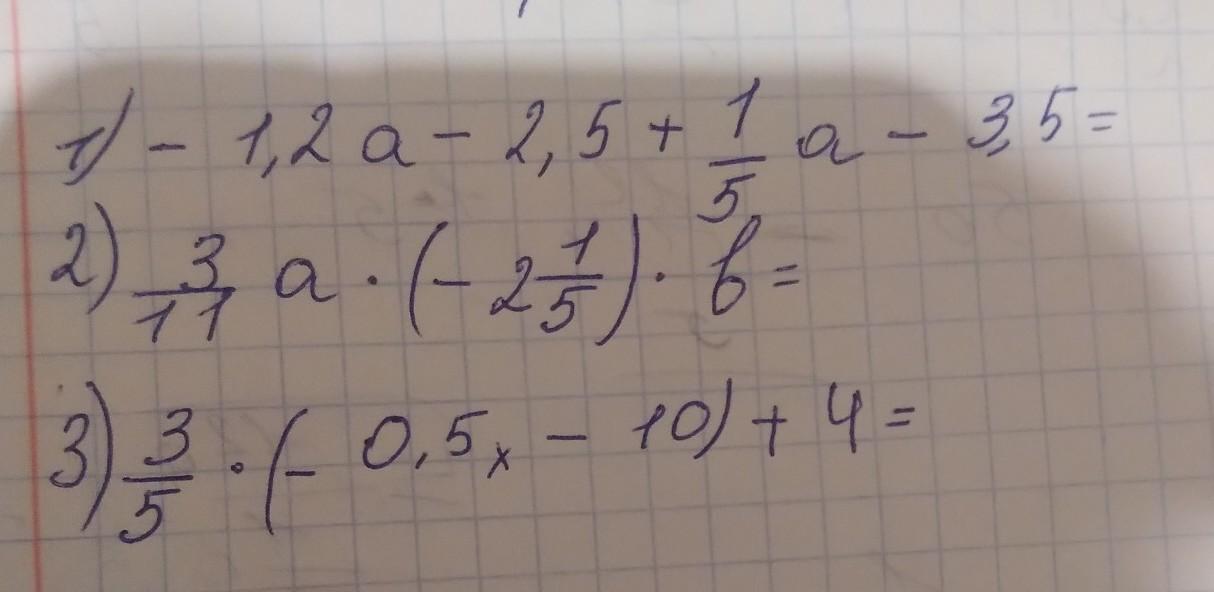 1) - 1,2 a - 2,5 + 1/5 a - 3,5 =
2) 3/11 a · (- 2 1/5) · b =
3) 3/5 · (- 0,5x - 10) + 4 =